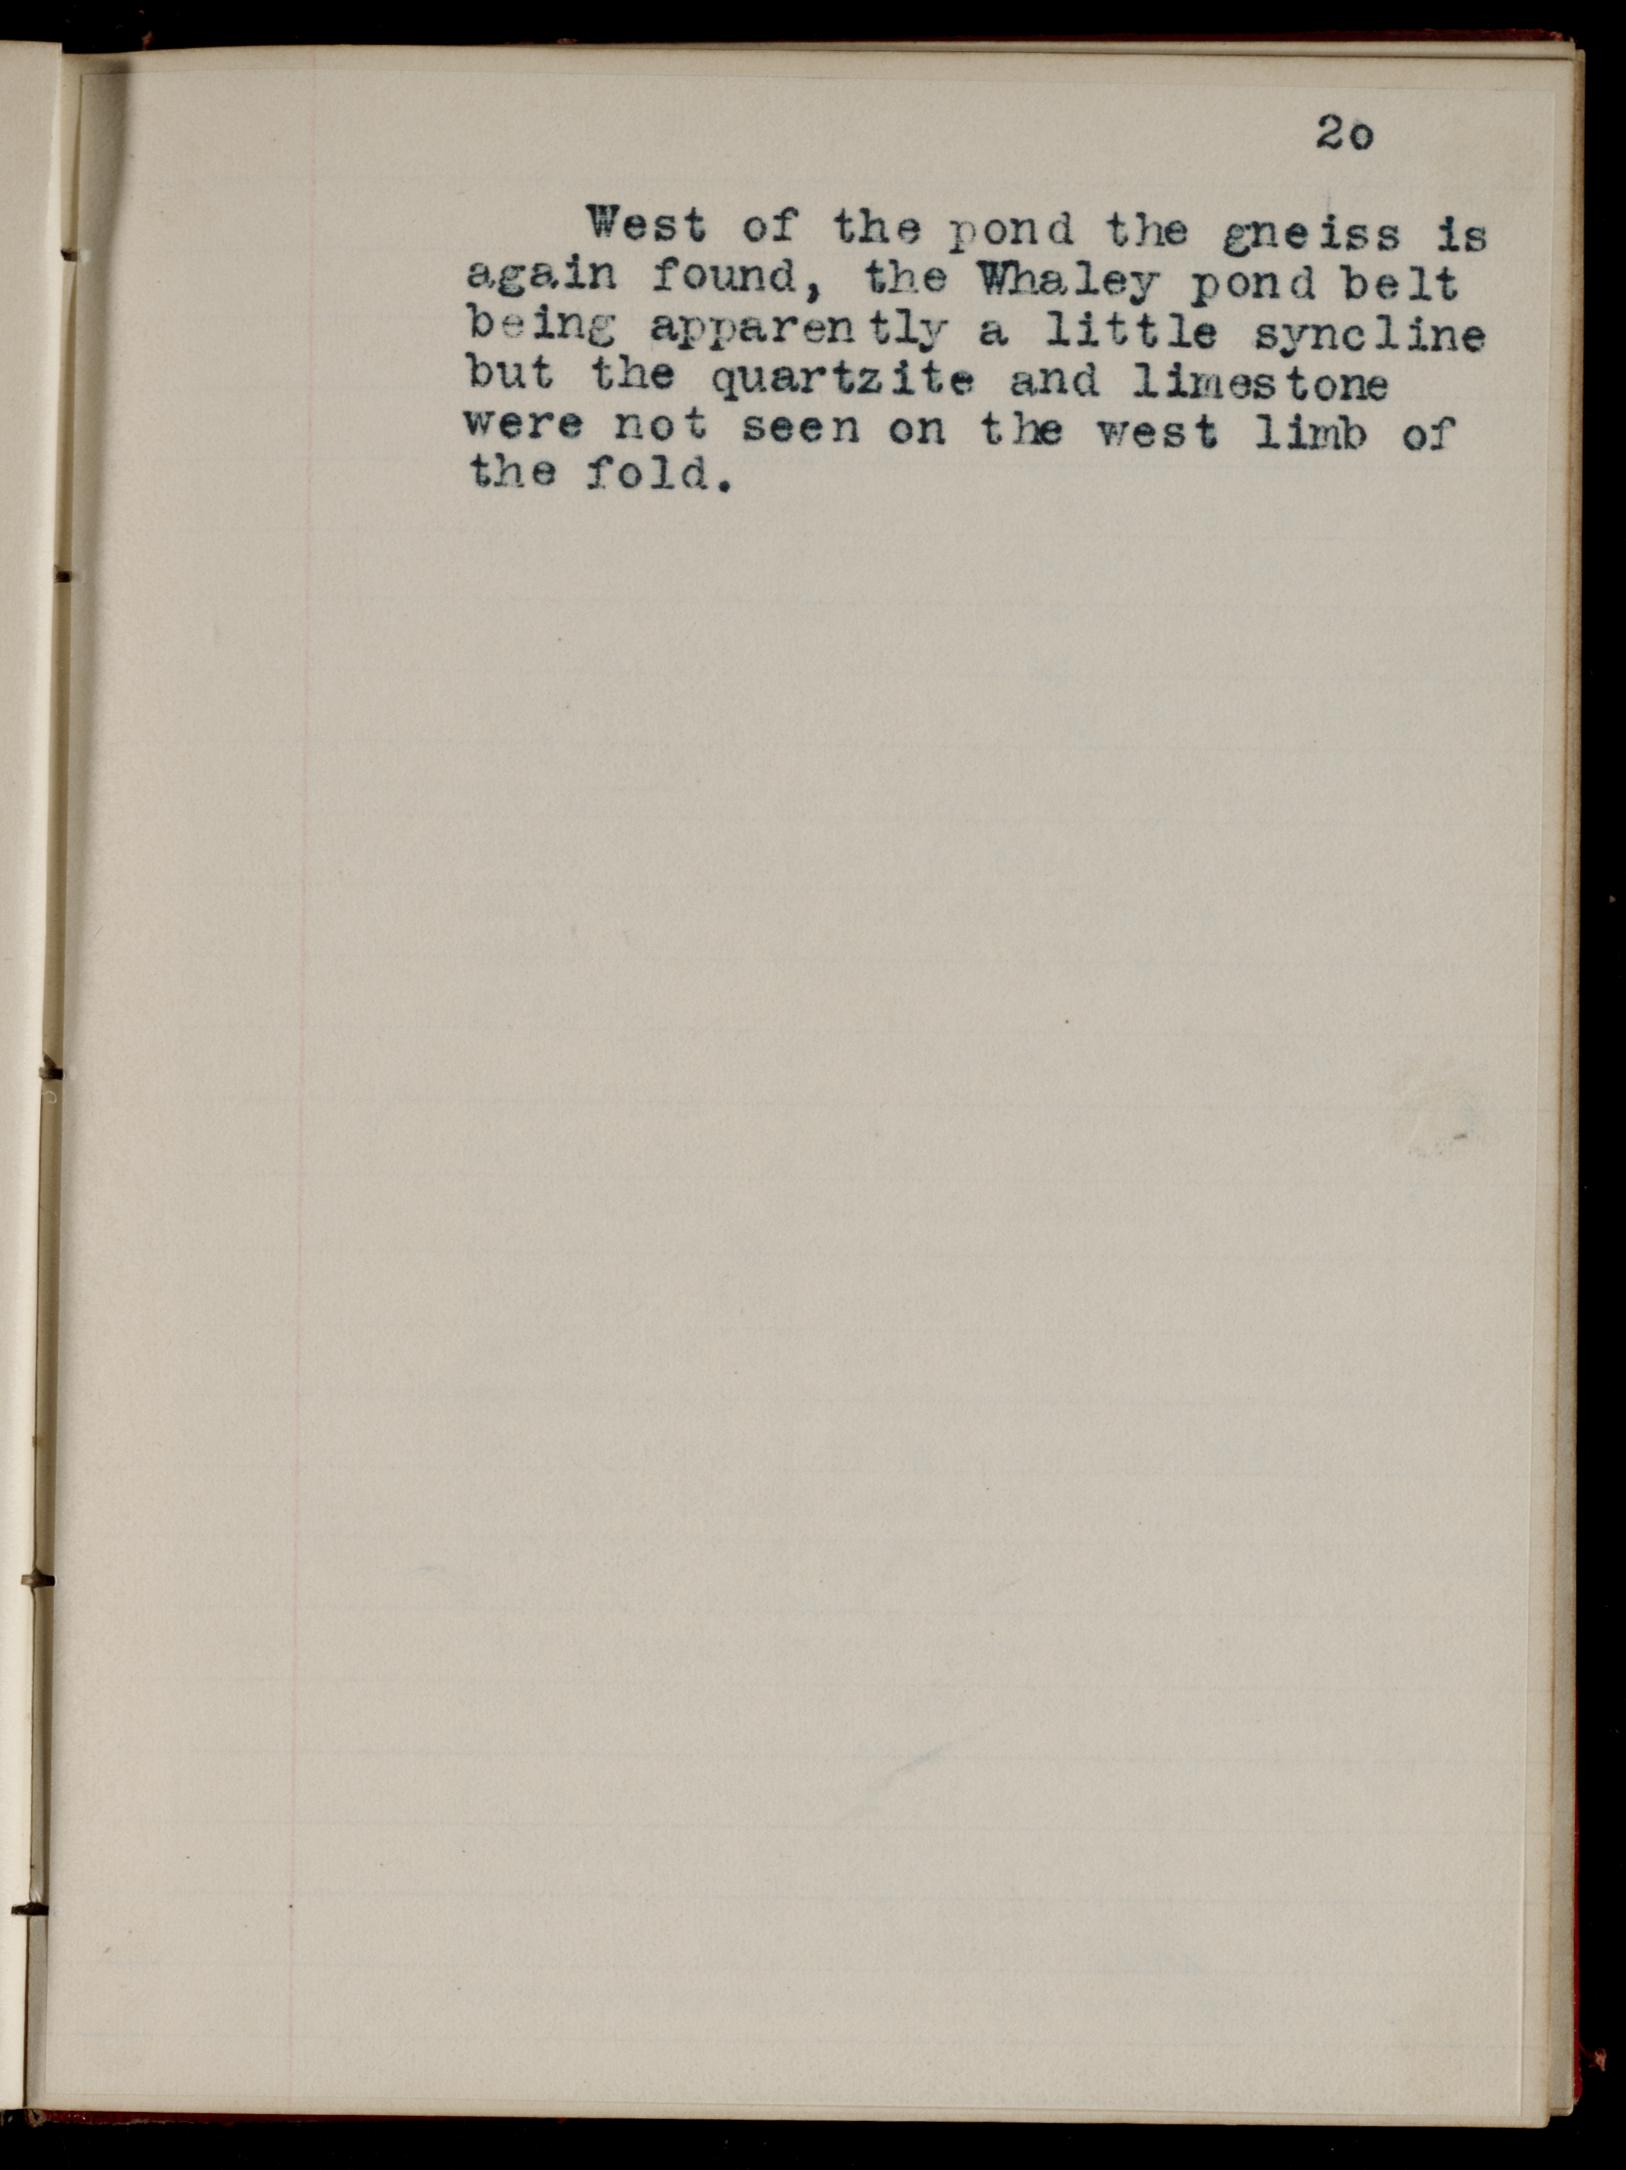 20
West of the pond the gneiss is
again found, the Whaley pond belt
being apparently a little syncline
but the quartzite and limestone
were not seen on the west limb of
the fold.